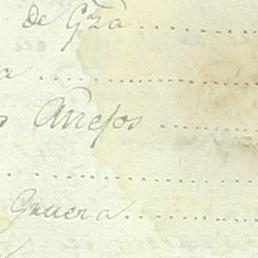 de Gza
a
s Añejos
Gruera